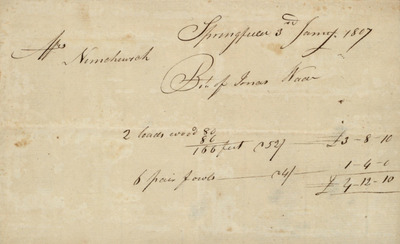 Springfield 3rd Jany. 1807
Mrs
Bt. of Jonas
2 loads wood 80
86
166 feet @52/ £3-8-10
6 pair fowls @4/ 1-4-0
£4-12-10